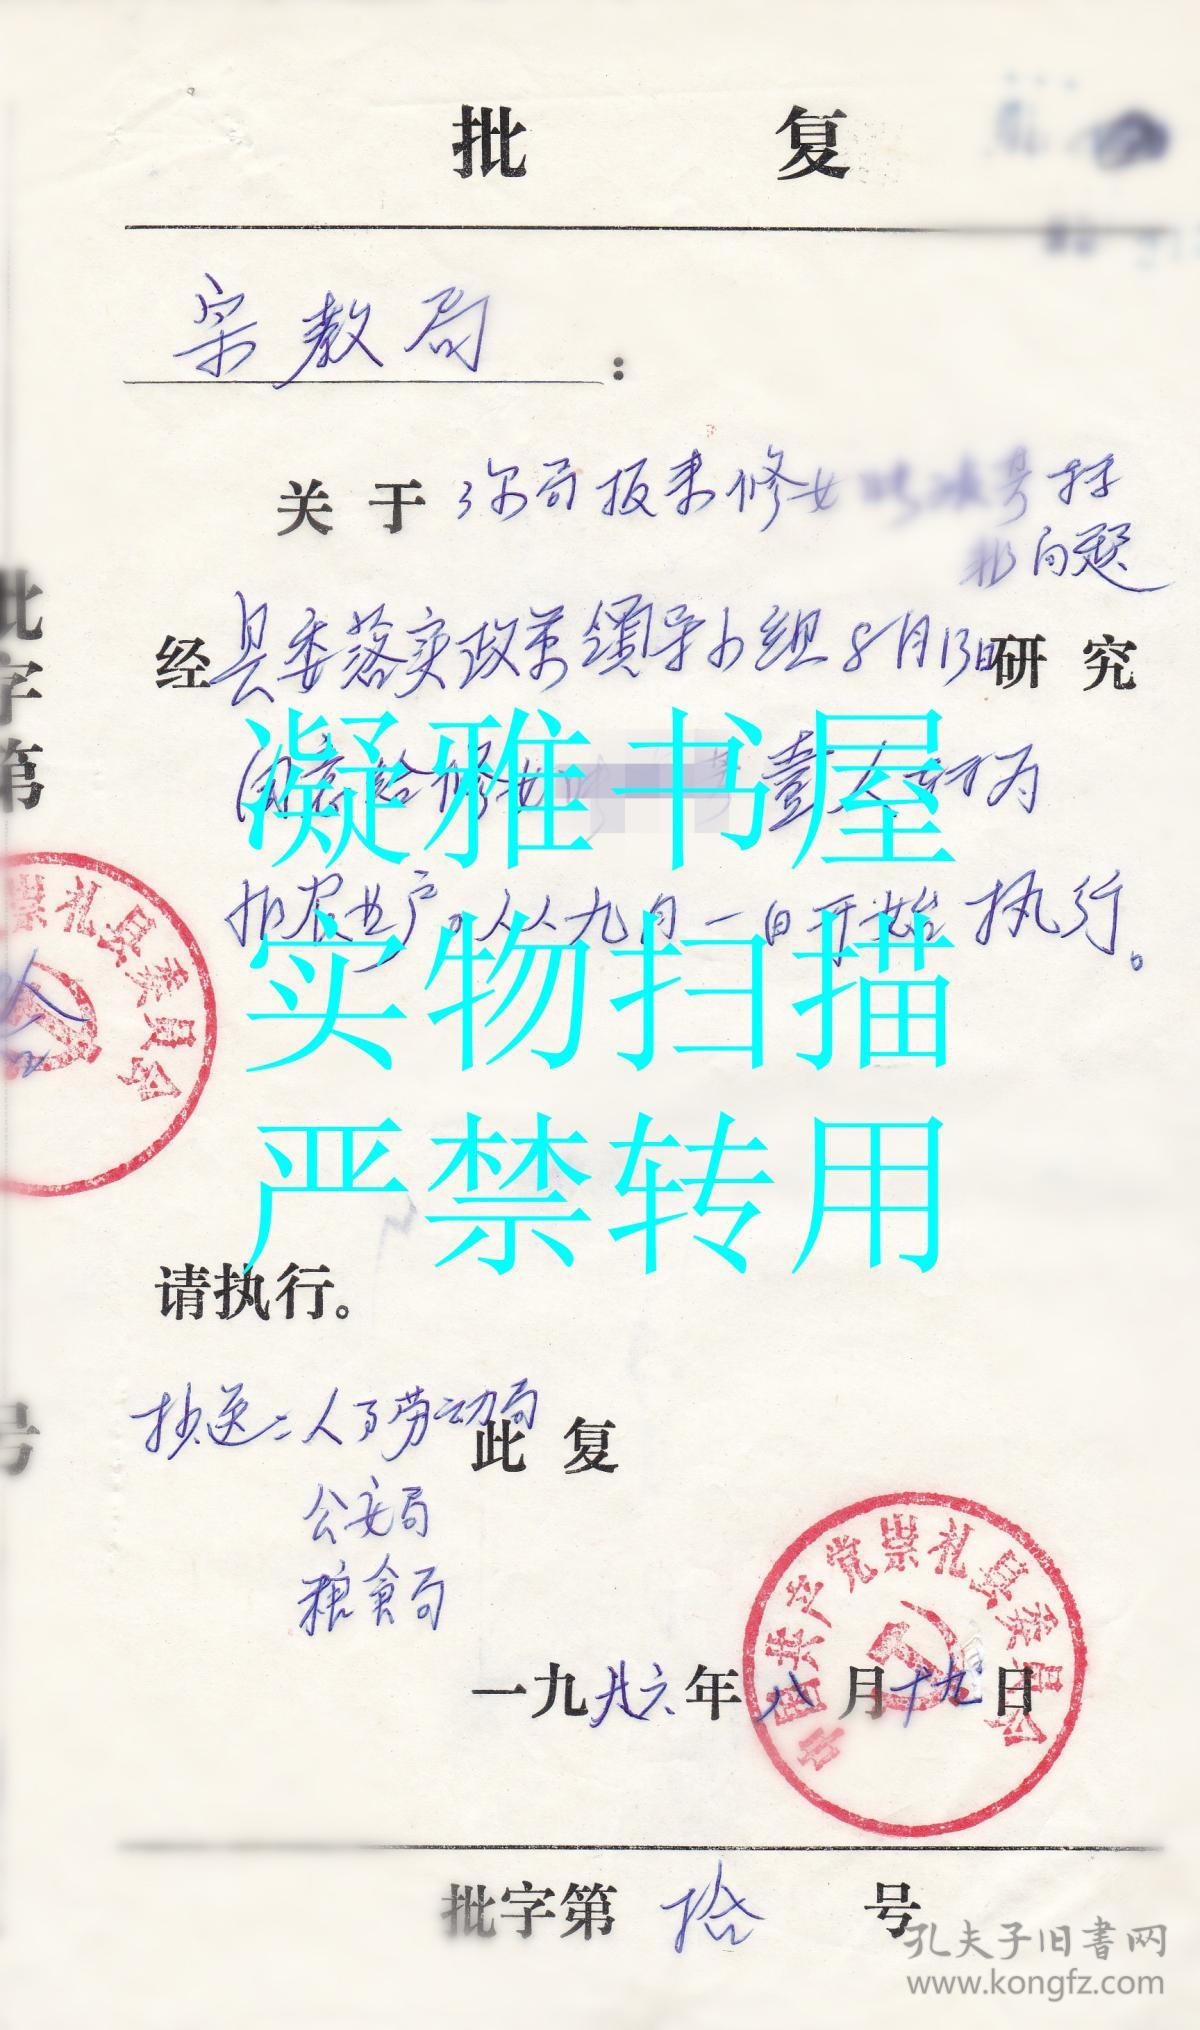 批 复
宗教局：
关于 你局报来修女
问题
经县委落实政策领导小组8月13日研究
同意给修女 壹人转为
非农业户。从九月一日开始执行。
凝雅书屋
实物扫描
严禁转用
请执行。
抄送：人事劳动局
此复
公安局
粮食局
一九八六年八月十九日
中国共产党崇礼县委员会
批字第拾号
批字第
号
崇礼县委员会
孔夫子旧书网
www.kongfz.com